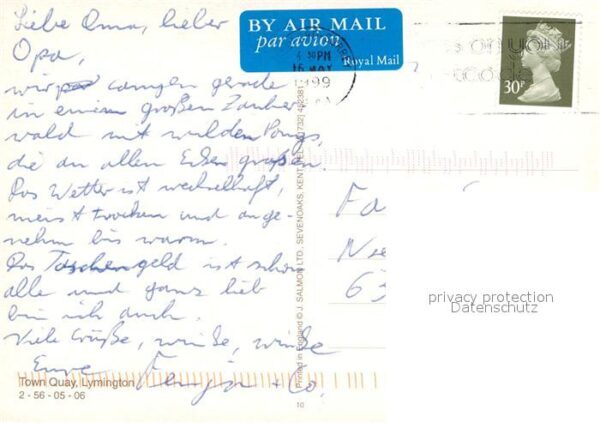 Liebe Oma, lieber
Opa,
wir campen gerade
in einem großen Zauber
wald mit wilden Ponys,
die an allen Ecken grasen.
Das Wetter ist wechselhaft,
meist trocken und ange-
nehm bis warm.
Das Taschengeld ist schon
alle und ganz lieb
bin ich auch.
Viele Grüße, winke, winke
Eure & Co.
Town Quay, Lymington
2 - 56 - 05 - 06
BY AIR MAIL
par avion
Royal Mail
PM
1999
30P
Printed in England © J. SALMON LTD., SEVENOAKS, KENT. TEL.
10
Fa
Nie
63
privacy protection
Datenschutz